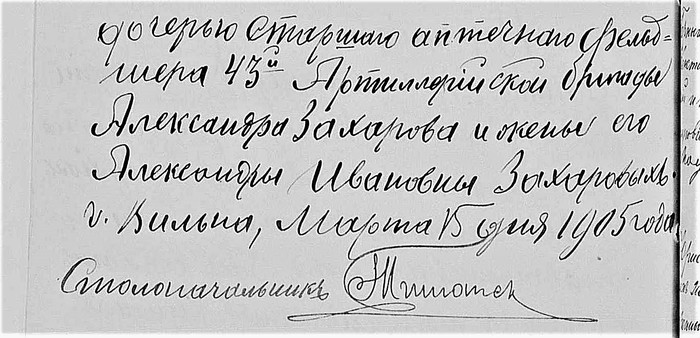 дочерью Старшаго аптечнаго фельд=
шера 43й Артиллерійской бригады
Александра Захарова и жены его
Александры Ивановны Захаровыхъ.
г. Вильна, Марта 15 дня 1905 года
Столоначальникъ